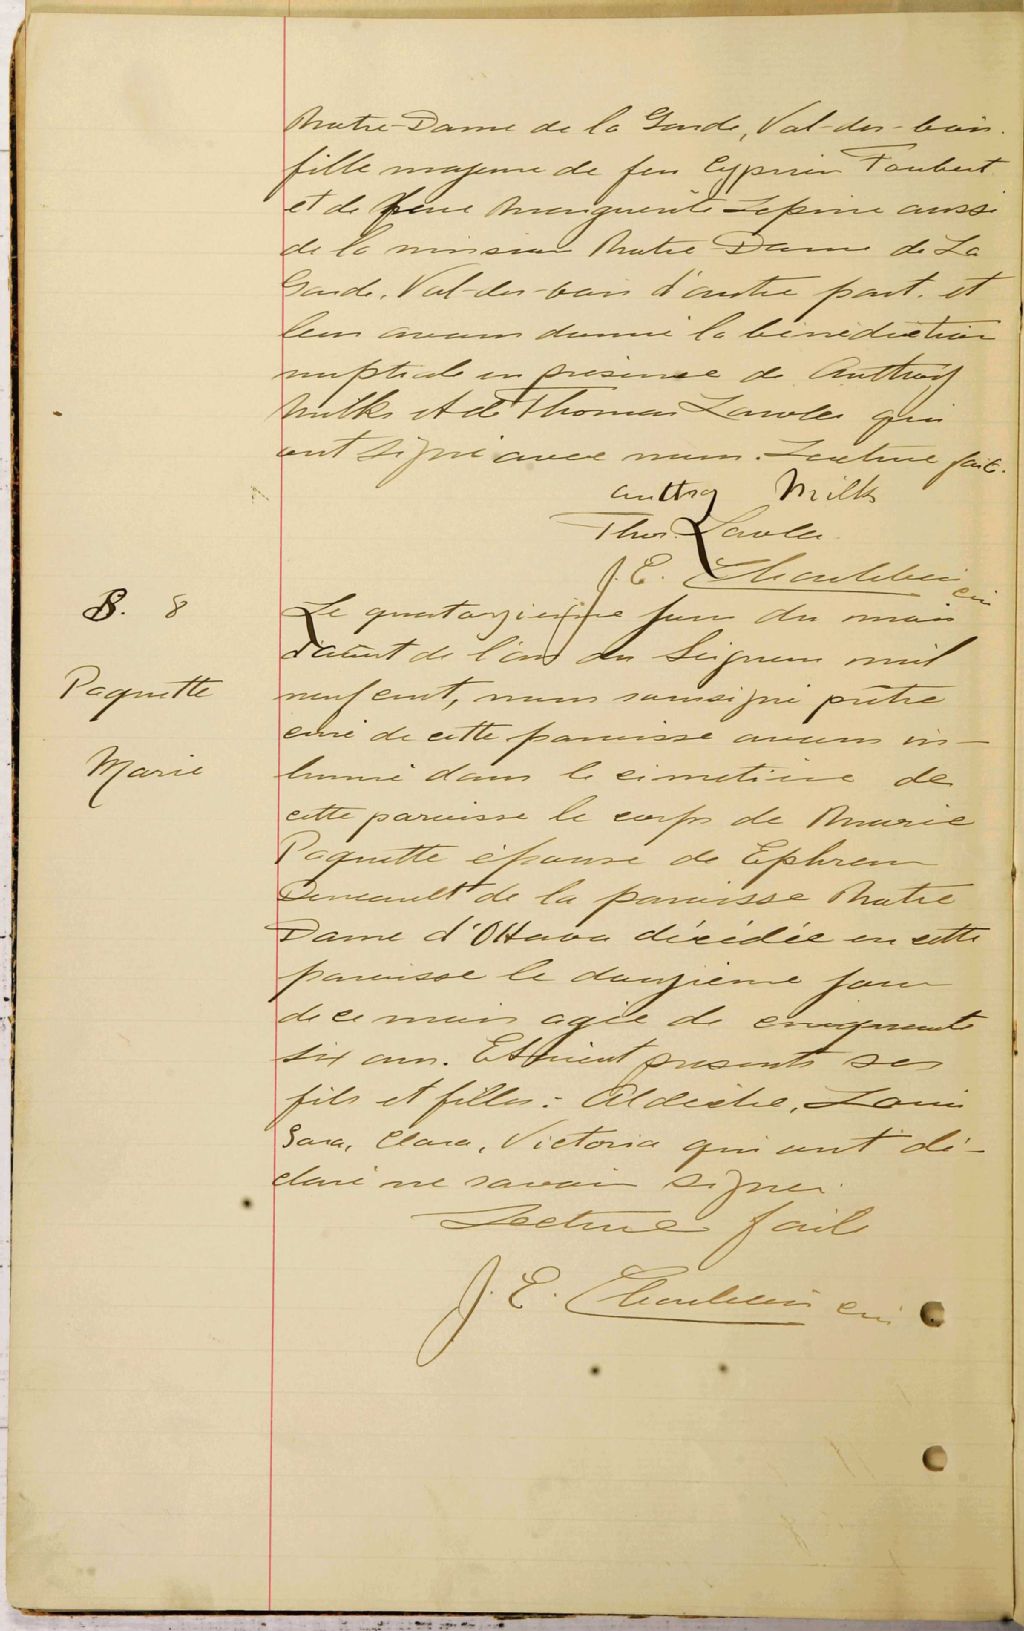 Notre-Dame de la Garde, Val-des-bois.
fille majeure de feu Cyprien Foubert
et de feue Marguerite Lepine aussi
de la mission Notre Dame de La
Garde, Val-des-bois d'autre part. et
leur avons donné la bénédiction
nuptiale en présence de Anthony
Milks et de Thomas Lawler qui
ont signé avec nous. Lecture faite.
Milks
Thos. Lawler
J. E.
B. 8
Le quatorzième jour du mois
d'aout de l'an du Seigneur mil
Paquette
neuf cent, nous soussigné prêtre
curé de cette paroisse avons in-
Marie
humé dans le cimetière de
cette paroisse le corps de Marie
Paquette épouse de Ephrem
de la paroisse Notre
Dame d'Ottawa décédée en cette
paroisse le douzieme jour
de ce mois agée de cinquante
six ans. Etaient presents ses
fils et filles: Louis
Sara, Clara, Victoria qui ont dé-
claré ne savoir signer.
Lecture faite
J. E. curé